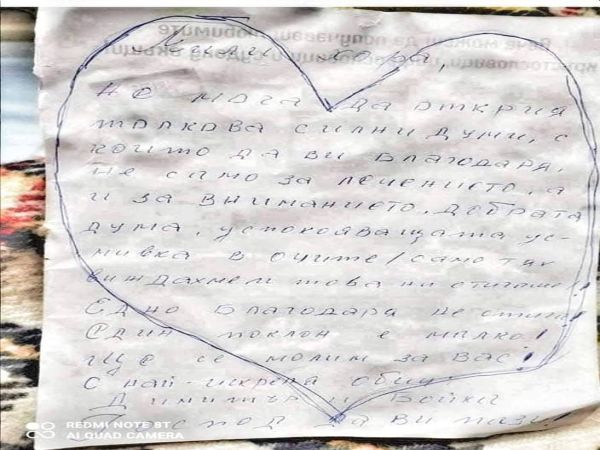 Мили хора,
не мога да открия
толкова силни думи, с
които да ви благодаря,
не само за лечението, а
и за вниманието, добрата
дума, успокояващата ус-
мивка в очите /само так
виждахмет това ни стигаше!
Едно благодаря не стига!
Един поклон е малко!
Ще се молим за Вас!
С най-искрена обич:
Димитър и Бойка
Господ да ви пази!
REDMI NOTE 8T
AI QUAD CAMERA